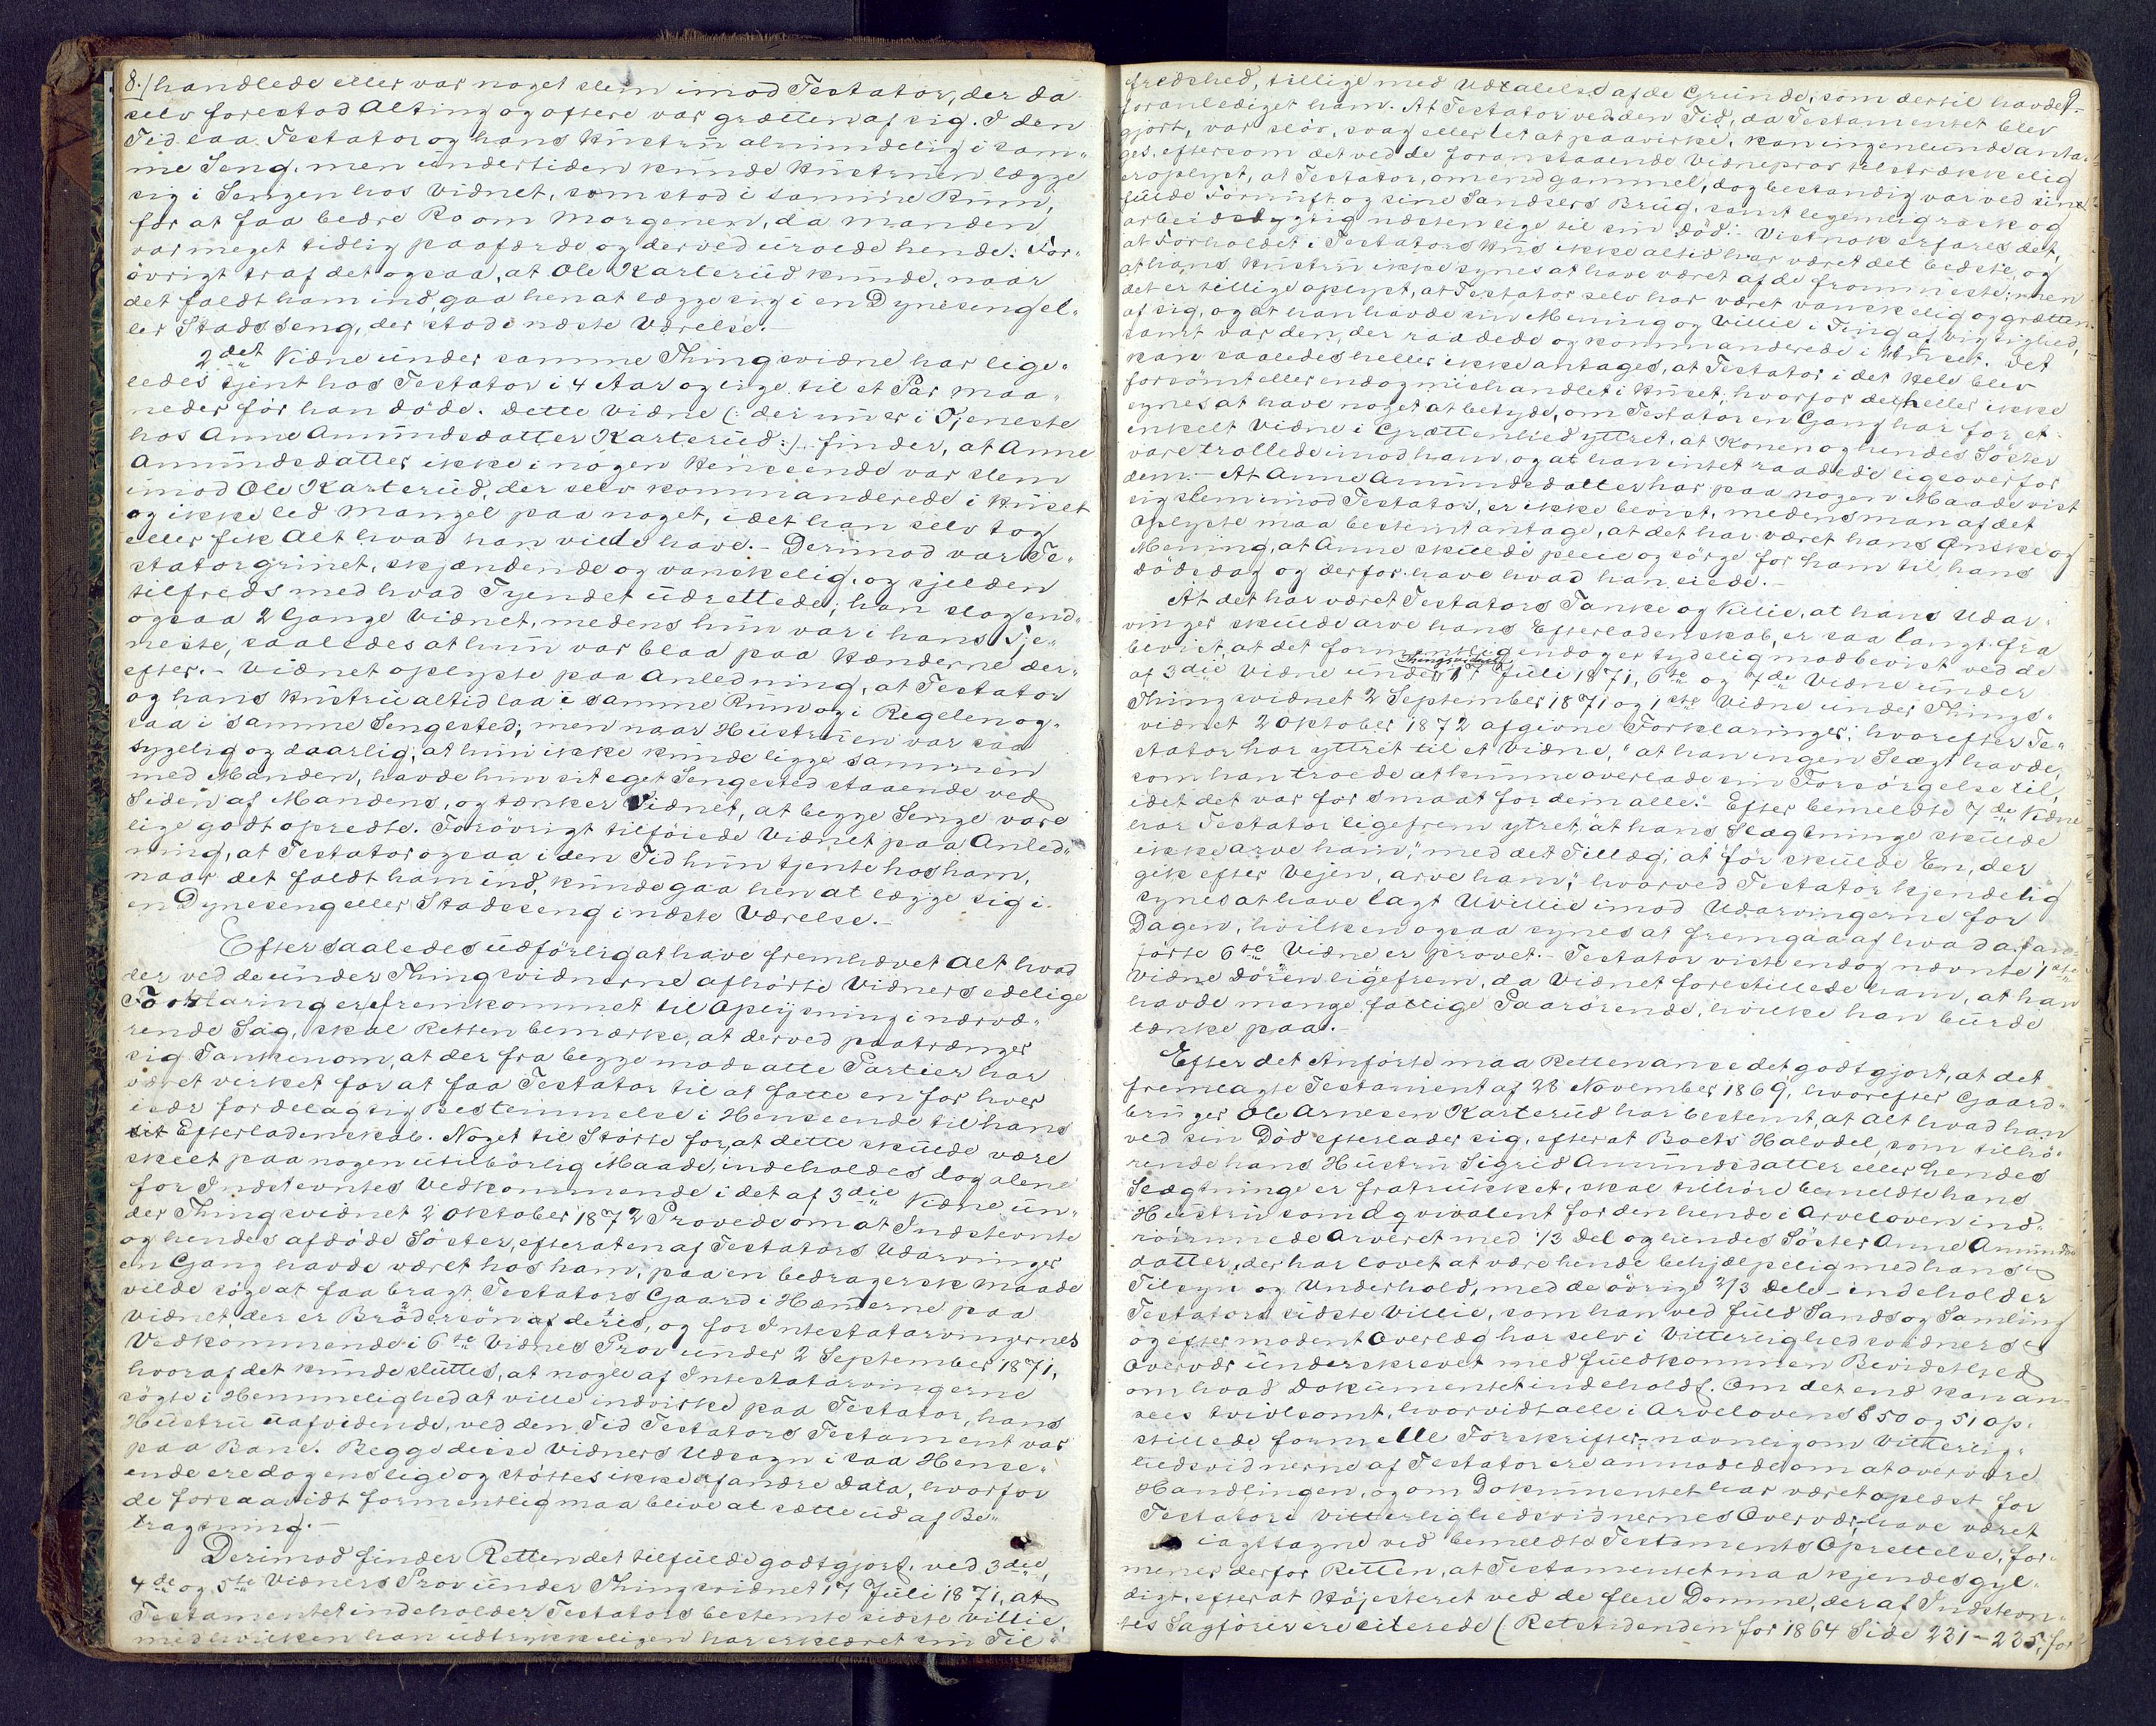 8./ handlede eller var noget slem imod Testator, der da
selv forestod Alting og oftere var grætten af sig. I den
Tid laa Testator og hans Hustru almindelig i sam-
me Seng, men undertiden kunde Hustruen lægge
sig i Sengen hos Vidnet, som stod i samme Rum,
for at faa bedre Ro om Morgenen, da Manden
var meget tidlig paafærde og derved uroede hende. For-
övrigt traf det ogsaa, at Ole Karterud kunde, naar
det faldt ham ind, gaa hen at lægge sig i en Dyneseng el-
ler Stadsseng, der stod i næste Værelse.-
2det Vidne under samme Thingsvidne har lige-
ledes tjent hos Testator i 4 Aar og lige til et Par Maa-
neder før han døde. Dette Vidne (: der nu er i Tjeneste
hos Anne Amundsdatter Karterud :) finder, at Anne
Amundsdatter ikke i nogen Henseende var slem
imod Ole Karterud, der selv kommanderede i Huset
og ikke led Mangel paa noget, idet han selv tog
eller fik Alt hvad han vilde have.- Derimod var Te-
stator grinet, skjændende og vanskelig, og sjelden
tilfreds med hvad Tyendet udrettede; han slog end-
ogsaa 2 Gange Vidnet, medens hun var i hans Tje-
neste, saaledes at hun var blaa paa Hænderne der-
efter.- Vidnet oplyste paa Anledning, at Testator
og hans Hustru altid laa i samme Rum og i Regelen og-
saa i samme Sengested; men naar Hustruen var saa
sygelig og daarlig, at hun ikke kunde ligge sammen
med Manden, havde hun sit eget Sengested staaende ved
Siden af Mandens, og tænker Vidnet, at begge Senge vare
lige godt opredte. Forövrigt tilföiede Vidnet paa Anled-
ning, at Testator ogsaa i den Tid hun tjente hos ham,
naar det faldt ham ind, kunde gaa hen at lægge sig i
en Dyneseng eller Stadsseng i næste Værelse.-
Efter saaledes udförlig at have fremhævet Alt hvad
der ved de under Thingsvidnerne afhörte Vidners edelige
Forklaringer er fremkommet til Oplysning i nærvæ-
rende Sag, skal Retten bemærke, at derved paatrænger
sig Tanken om, at der fra begge modsatte Partier har
været virket for at faa Testator til at fatte en for hver
især fordelagtig Bestemmelse i Henseende til hans
sit Efterladenskab. Noget til Støtte for, at dette skulde være
skeet paa nogen utilbörlig Maade, indeholdes dog alene
for Indstevntes Vedkommende i det af 3die Vidne un-
der Thingsvidnet 2 Oktober 1872 Provede om at Indstevnte
og hendes afdöde Söster, efterat en af Testators Udarvinger
en Gang havde været hos ham, paa en bedragersk Maade
vilde söge at faa bragt Testators Gaard i Hænderne paa
Vidnet, der er Brödersön af deres, og for Intestatarvingernes
Vedkommende i 6te Vidnes Prov under 2 September 1871,
hvoraf det kunde sluttes, at nogle af Intestatarvingerne
søgte i Hemmelighed at ville indvirke paa Testator, hans
Hustru uafvidende, ved den Tid Testators Testament var
paa Bane. Begge disse Vidners Udsagn i saa Hense-
ende ere dog enslige og støttes ikke af andre Data, hvorfor
de forsaavidt formentlig maa blive at sætte ud af Be-
tragtning.-
Derimod finder Retten det tilfulde godtgjort, ved 3die,
4de og 5te Vidners Prov under Thingsvidnet 17 Juli 1871, at
Testamentet indeholder Testators bestemte sidste Villie,
med hvilken han udtrykkeligen har erklæret sin Til-
9.
fredshed, tillige med Udtalelse af de Grunde, som dertil havde
foranlediget ham. At Testator ved den Tid, da Testamentet blev
gjort, var slöv, svag eller let at paavirke, kan ingenlunde anta-
ges, eftersom det ved de foranstaaende Vidneprov tilstrækkelig
er oplyst, at Testator, om end gammel, dog bestandig var ved sin
fulde Fornuft og sine Sandsers Brug, samt legemlig rask og
arbeidsdygtig næsten lige til sin Död.- Vistnok erfares det,
at Forholdet i Testators Hus ikke altid har været det bedste, og
at hans Hustru ikke synes at have været af de frommeste; men
det er tillige oplyst, at Testator selv har været vanskelig og grætten
af sig, og at han havde sin Mening og Villie i Ting af Vigtighed,
samt var den, der raadede og kommanderede i Huset. Det
kan saaledes heller ikke antages, at Testator i det Hele blev
forsömt eller endog mishandlet i Huset, hvorfor det heller ikke
synes at have noget at betyde, om Testator en Gang har for et
enkelt Vidne i Grættenhed yttret, at Konen og hendes Söster
vare trollede imod ham, og at han intet raadede ligeoverfor
dem.- At Anne Amundsdatter har paa nogen Maade vist
sig slem imod Testator, er ikke bevist, medens man af det
Oplyste maa bestemt antage, at det har været hans Ønske og
Mening, at Anne skulde pleie og sörge for ham til hans
Dödsdag og derfor have hvad han eiede.-
At det har været Testators Tanke og Villie, at hans Udar-
vinger skulde arve hans Efterladenskab, er saa langt fra
bevist, at det formentlig endog er tydelig modbevist ved de
af 3die Vidne under Thingsvidnet 17 Juli 1871, 6te og 7de Vidne under
Thingsvidnet 2 September 1871 og 1ste Vidne under Things-
vidnet 2 Oktober 1872 afgivne Forklaringer; hvorefter Te-
stator har yttret til et Vidne, "at han ingen Slægt havde,
som han troede at kunne overlade sin Forsörgelse til,
idet det var for smaat for dem alle."- Efter bemeldte 7de Vidne
har Testator ligefrem ytret, "at hans Slægtninge skulde
ikke arve ham," med det Tillæg, at "för skulde En, der
gik efter Vejen, arve ham;" hvorved Testator kjendelig
synes at have lagt Uvillie imod Udarvingerne for
Dagen, hvilken ogsaa synes at fremgaa af hvad an-
förte 6te Vidne er provet.- Testator viste endog nævnte 1ste
Vidne Dören ligefrem, da Vidnet forestillede ham, at han
havde mange fattige Paarörende, hvilke han burde
tænke paa.-
Efter det Anförte maa Retten anse det godtgjort, at det
fremlagte Testament af 28 November 1869, hvorefter Gaard-
bruger Ole Arnesen Karterud har bestemt, at Alt hvad han
ved sin Död efterlader sig, efterat Boets Halvdel, som tilhö-
rende hans Hustru Sigrid Amundsdatter eller hendes
Slægtninge er fratrukket, skal tilhöre bemeldte hans
Hustru som Æqvivalent for den hende i Arveloven ind-
römmede Arveret med 1/3 Del og hendes Söster Anne Amunds-
datter, der har lovet at være hende behjælpelig med hans
Tilsyn og Underhold, med de övrige 2/3 Dele - indeholder
Testators sidste Villie, som han ved fuld Sands og Samling
og efter modent Overlæg har selv i Vitterlighedsvidners
Overvær underskrevet med fuldkommen Bevidsthed
om hvad Dokumentet indeholdt. Om det end kan an-
sees tvivlsomt, hvorvidt alle i Arvelovens § 50 og 51 op-
stillede formelle Forskrifter, navnlig om Vitterlig-
hedsvidnerne af Testator ere anmodede om at overvære
Handlingen, og om Dokumentet har været oplæst for
Testator i Vitterlighedsvidnernes Overvær, have været
iagttagne ved bemeldte Testaments Oprettelse, for-
mener derfor Retten, at Testamentet maa kjendes gyl-
digt, efterat Höjesteret ved de flere Domme, der af Indstevn-
tes Sagförer ere citerede (Retstidenden for 1864 Side 231-235, for